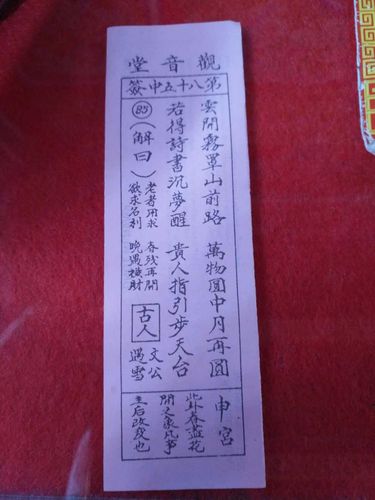 觀音堂
第八十五中簽
雲開霧罩山前路　萬物圓中月再圓
若得詩書沉夢醒　貴人指引步天台
85（解曰）
老者用求　春残再開
欲求名利　晚遇橫財
古人
文公
遇雪
申宮
此卦春盡花
開之象凡事
主后改变也